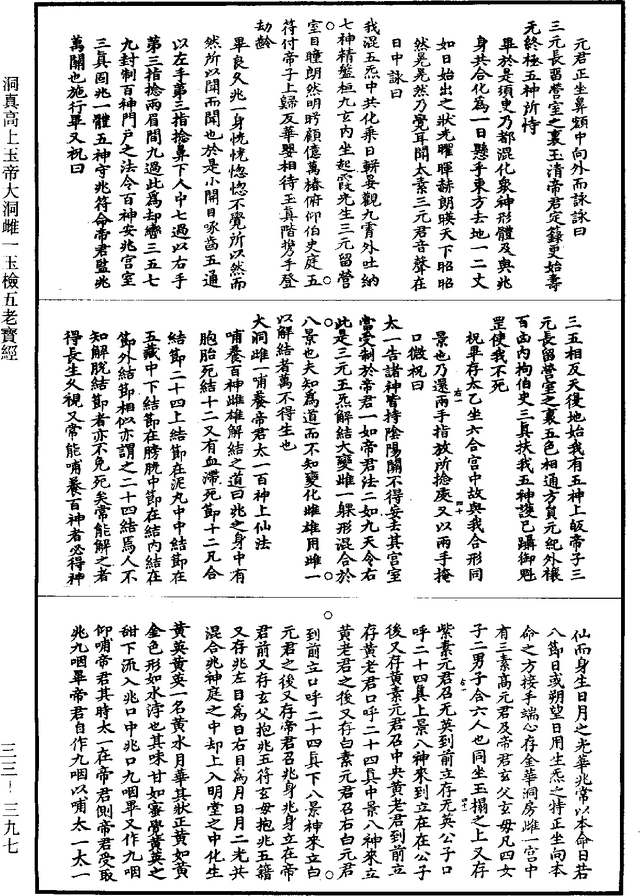 洞真高上玉帝大洞雌一玉檢五老寶經
三三—三九七
元君正坐鼻頞中向外而詠詠曰
三元長留營室之裏玉清帝君定籙更始壽
元終極五神所恃
畢於是須臾乃都混化衆神形體及與兆
身共合化為一日懸手東方去地一二丈
如日始出之狀光曜暉赫朗暎天下昭昭
然晃晃然乃覺耳聞太素三元君音聲在
日中詠曰
我混五炁中共化乘日軿晏觀九霄外吐納
七神精盤桓九玄內坐起霞光生三元留營
室日瞳朗然明眄顧億萬椿俯仰伯史庭五
符付帝子上歸反華嬰相待玉真階携手登
劫齡
畢良久兆一身恍恍惚惚不覺所以然而
然所以聞而聞也於是小開目啄齒五通
以左手第三指捻鼻下人中七過以右手
第三指捻兩眉間九過此為却轡三五七
九封制百神門戶之法令百神安兆宮室
三真固兆一體五神守兆符命帝君監兆
萬關也施行畢又祝曰
三五相反天復地始我有五神上皈帝子三
元長留營室之裏五色相通方員元紀外禳
百凶內拘伯史三真扶我五神護已躡御魁
罡使我不死
祝畢存太乙坐六合宮中故與我合形同
景也乃還兩手指放所捻處又以兩手掩
口微祝曰
太一告諸神皆持陰陽關不得妄去其宮室
當受制於帝君一如帝君法二如九天令右
此是三元五炁解結大變雌一躶形混合於
八景也夫知為道而不知變化雌雄用雌一
以解結者萬不得生也
大洞雌一哺養帝君太一百神上仙法
哺養百神雌雄解結之道曰兆之身中有
胞胎死結十二又有血滯死節十二凡合
結節二十四上結節在泥丸中中結節在
五藏中下結節在膀胱中節在結內結在
節外結節相似亦謂之二十四結焉人不
知解脫結節者亦不免死矣常能解之者
得長生久視又常能哺養百神者必得神
仙而身生日月之光華兆常以本命日若
八節日或朔望日用生炁之時正坐向本
命之方接手端心存金華洞房雌一宮中
有三素高元君及帝君玄父玄母凡四女
子二男子合六人也同坐玉榻之上又存
紫素元君召无英到前立存无英公子口
呼二十四真上景八神來到立在在公子
後又存黃素元君召中央黃老君到前立
存黃老君口呼二十四真中景八神來立
黃老君之後又存白素元君召右白元君
到前立口呼二十四真下八景神來立白
元君之後又存帝君召兆身兆身立在帝
君前又存玄父抱兆五符玄母抱兆五籍
又存兆左目為日右目為月日月二光共
混合兆神庭之中却上入明堂之中化生
黃英黃英一名黃水月華其狀正黃如黃
金色形如水渟也其味甘如蜜覺黃英之
甜下流入兆口中兆口九咽畢又作九咽
仰哺帝君其時太一在帝君側帝君受取
兆九咽畢帝君自作九咽以哺太一太一